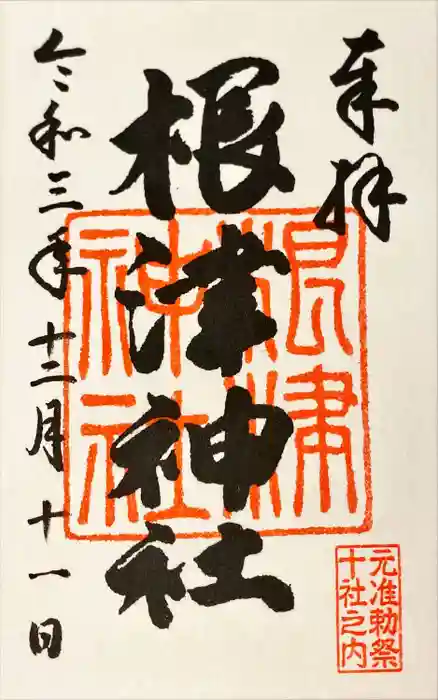 奉拝
根津神社
令和三年十二月十一日
根津
神社
元准勅祭
十社之内